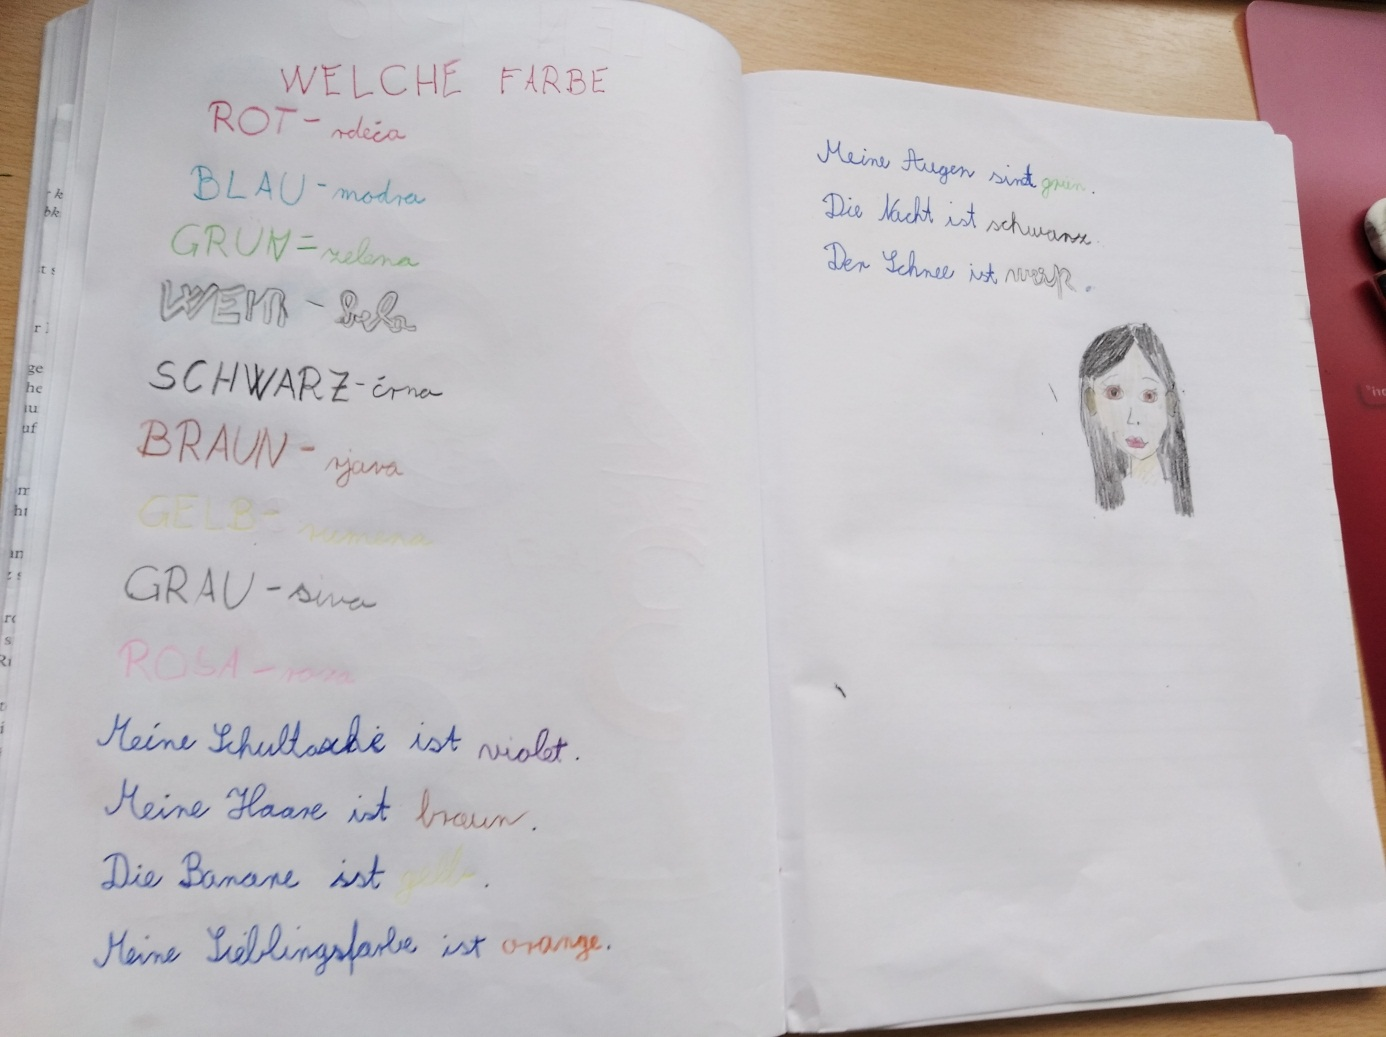 WELCHE FARBE
ROT - rdeča
BLAU - modra
GRUN = zelena
- bela
SCHWARZ - črna
BRAUN - rjava
GELB - rumena
GRAU - siva
ROSA - roza
Meine Schultasche ist violet.
Meine Haare ist braun.
Die Banane ist gelb.
Meine Lieblingsfarbe ist orange.
Meine Augen sint grün.
Die Nacht ist schwarz.
Der Schnee ist weiß.